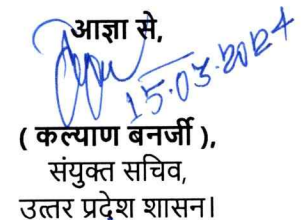 आज्ञा से,
15.03.2024
( कल्याण बनर्जी ),
संयुक्त सचिव,
उत्तर प्रदेश शासन।